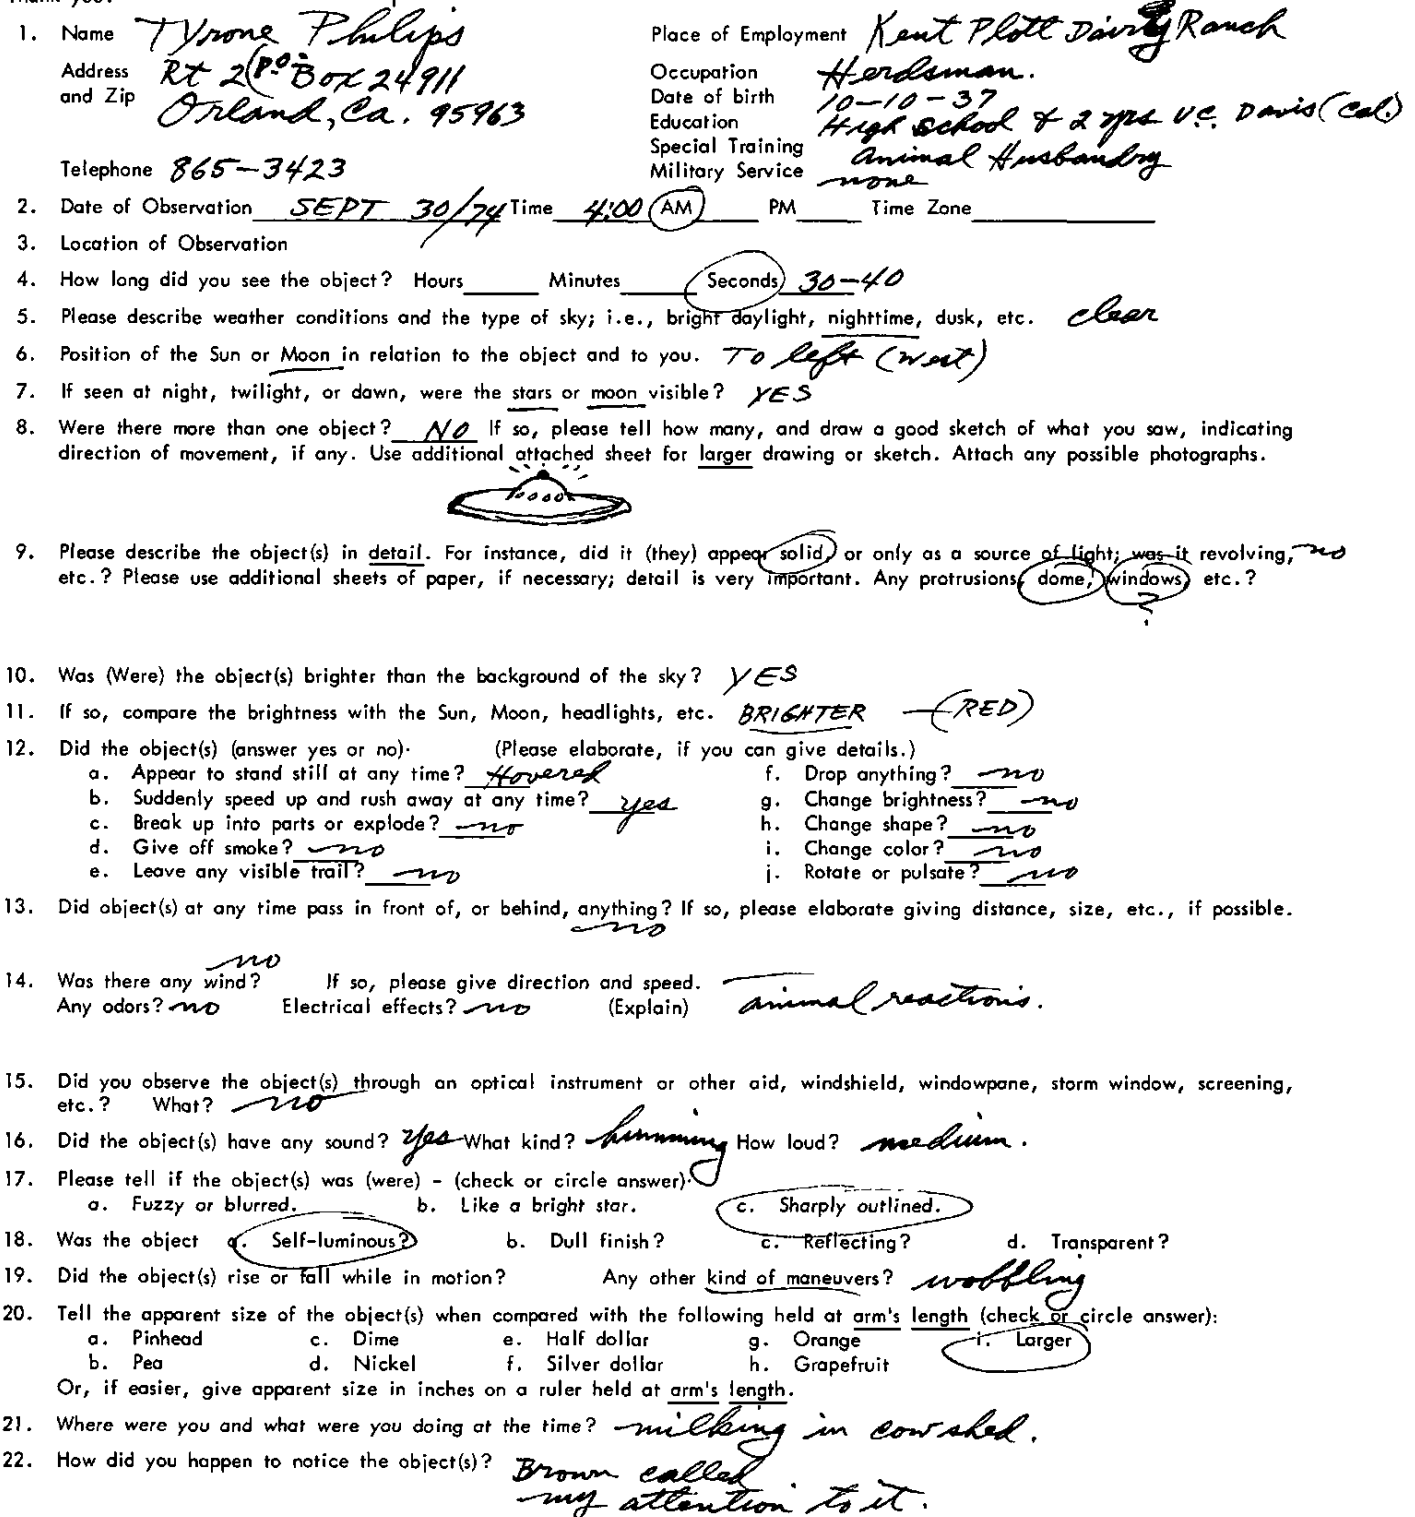 1. Name Tyrone Philips Place of Employment Kent Plott Dairy Ranch
Address and Zip Rt 2 (P.O. Box 24911 Occupation Herdsman.
Orland, Ca. 95963 Date of birth 10-10-37
Education High School & 2 yrs U.C. Davis (Cal.)
Special Training Animal Husbandry
Telephone 865-3423 Military Service none
2. Date of Observation SEPT 30/74 Time 4:00 AM PM Time Zone
3. Location of Observation
4. How long did you see the object? Hours Minutes Seconds 30-40
5. Please describe weather conditions and the type of sky; i.e., bright daylight, nighttime, dusk, etc. clear
6. Position of the Sun or Moon in relation to the object and to you. To left (West)
7. If seen at night, twilight, or dawn, were the stars or moon visible? YES
8. Were there more than one object? NO If so, please tell how many, and draw a good sketch of what you saw, indicating
direction of movement, if any. Use additional attached sheet for larger drawing or sketch. Attach any possible photographs.
9. Please describe the object(s) in detail. For instance, did it (they) appear solid, or only as a source of light; was it revolving, no
etc.? Please use additional sheets of paper, if necessary; detail is very important. Any protrusions, dome, windows, etc.?
?
10. Was (Were) the object(s) brighter than the background of the sky? YES
11. If so, compare the brightness with the Sun, Moon, headlights, etc. BRIGHTER — (RED)
12. Did the object(s) (answer yes or no). (Please elaborate, if you can give details.)
a. Appear to stand still at any time? Hovered f. Drop anything? no
b. Suddenly speed up and rush away at any time? yes g. Change brightness? no
c. Break up into parts or explode? no h. Change shape? no
d. Give off smoke? no i. Change color? no
e. Leave any visible trail? no j. Rotate or pulsate? no
13. Did object(s) at any time pass in front of, or behind, anything? If so, please elaborate giving distance, size, etc., if possible.
no
no
14. Was there any wind? If so, please give direction and speed. —
Any odors? no Electrical effects? no (Explain) animal reactions.
15. Did you observe the object(s) through an optical instrument or other aid, windshield, windowpane, storm window, screening,
etc.? What? no
16. Did the object(s) have any sound? Yes What kind? humming How loud? medium.
17. Please tell if the object(s) was (were) - (check or circle answer).
a. Fuzzy or blurred. b. Like a bright star. c. Sharply outlined.
18. Was the object a. Self-luminous? b. Dull finish? c. Reflecting? d. Transparent?
19. Did the object(s) rise or fall while in motion? Any other kind of maneuvers? wobbling
20. Tell the apparent size of the object(s) when compared with the following held at arm's length (check or circle answer):
a. Pinhead c. Dime e. Half dollar g. Orange i. Larger
b. Pea d. Nickel f. Silver dollar h. Grapefruit
Or, if easier, give apparent size in inches on a ruler held at arm's length.
21. Where were you and what were you doing at the time? milking in cow shed.
22. How did you happen to notice the object(s)? Brown called
my attention to it.